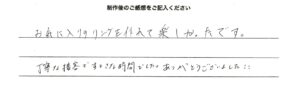 制作後のご感想をご記入ください
お気に入りのリングを作れて楽しかったです。
丁寧な接客ですてきな時間でした。ありがとうございました